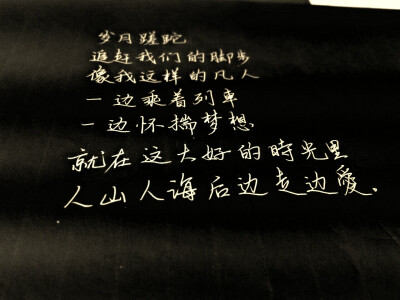 岁月蹉跎
追赶我们的脚步
像我这样的凡人
一边乘着列車
一边怀揣梦想
就在这大好的時光里
人山人海后边走边愛.